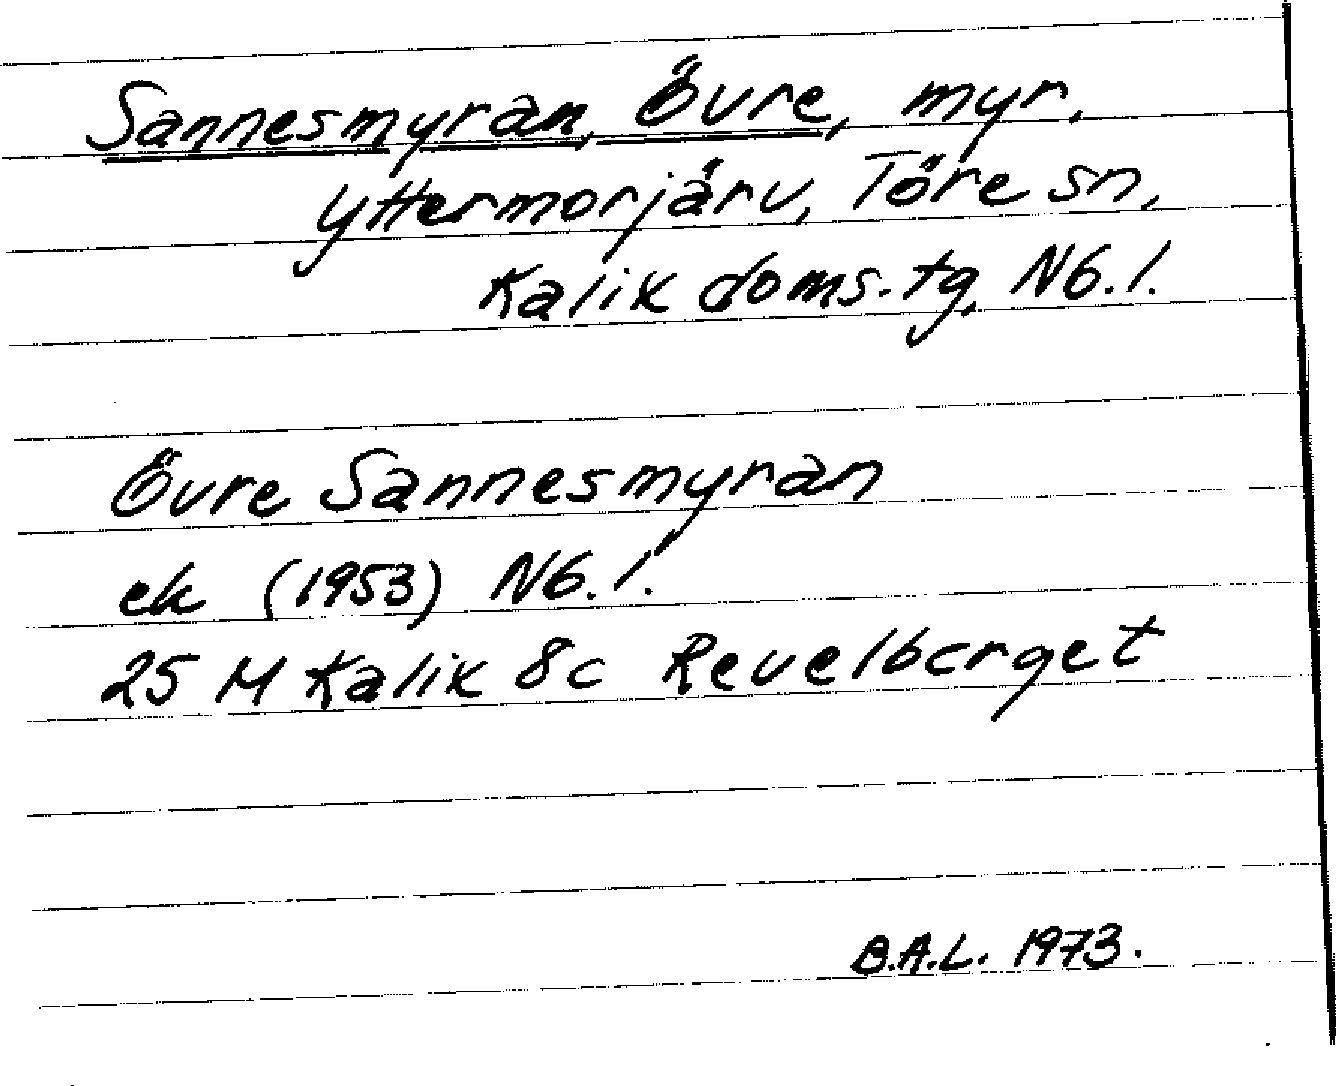 Sannesmyran, Övre, myr,
Yttermorjärv, Töre sn,
Kalix doms.tg, Nb.l.
Övre Sannesmyran
ek (1953) Nb.l.
25 M Kalix 8c Revelberget
B.A.L. 1973.